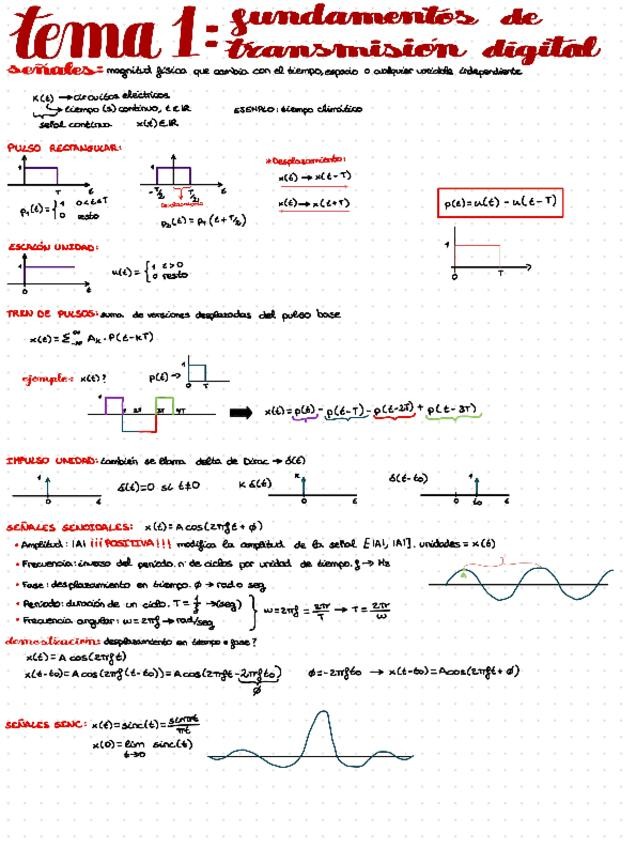 tema 1: fundamentos de
transmisión digital
señales = magnitud física que cambia con el tiempo, espacio o cualquier variable independiente
x(t) → circuitos eléctricos
→ tiempo (s) continuo, t∈ℝ
EJEMPLO: tiempo climático
señal continua x(t)∈ℝ
PULSO RECTANGULAR:
* Desplazamiento:
x(t) → x(t-T)
x(t) → x(t+T)
p(t) = u(t) - u(t-T)
1 T t
-T/2 T/2 t
p₁(t) = { 1 0<t≤T
0 resto
p₂(t) = p₁(t+T/2)
1 T
ESCALÓN UNIDAD:
1 t
u(t) = { 1 t>0
0 resto
TREN DE PULSOS: suma de versiones desplazadas del pulso base
x(t) = Σ-∞^∞ Aₖ · P(t-kT)
ejemplo: x(t)? p(t) → 1 T
x(t) = p(t) - p(t-T) - p(t-2T) + p(t-3T)
IMPULSO UNIDAD: también se llama delta de Dirac → δ(t)
1 t δ(t)=0 si t≠0 K δ(t) K t δ(t-to) 1 to t
SEÑALES SENOIDALES: x(t) = A cos(2πft + ϕ)
• Amplitud: |A| ¡¡¡POSITIVA!!! modifica la amplitud de la señal [|A|, |A|]. unidades = x(t)
• Frecuencia: inverso del período. nº de ciclos por unidad de tiempo. f → Hz
• Fase: desplazamiento en tiempo. ϕ → rad o seg
• Período: duración de un ciclo. T = 1/f → (seg)
• Frecuencia angular: ω = 2πf → rad/seg
} ω = 2πf = 2π/T → T = 2π/ω
demostración: desplazamiento en tiempo = fase?
x(t) = A cos(2πft)
x(t-to) = A cos(2πf(t-to)) = A cos(2πft - 2πfto) ϕ = -2πfto → x(t-to) = A cos(2πft + ϕ)
ϕ
SEÑALES SINC: x(t) = sinc(t) = senπt/πt
x(0) = lim t→0 sinc(t)